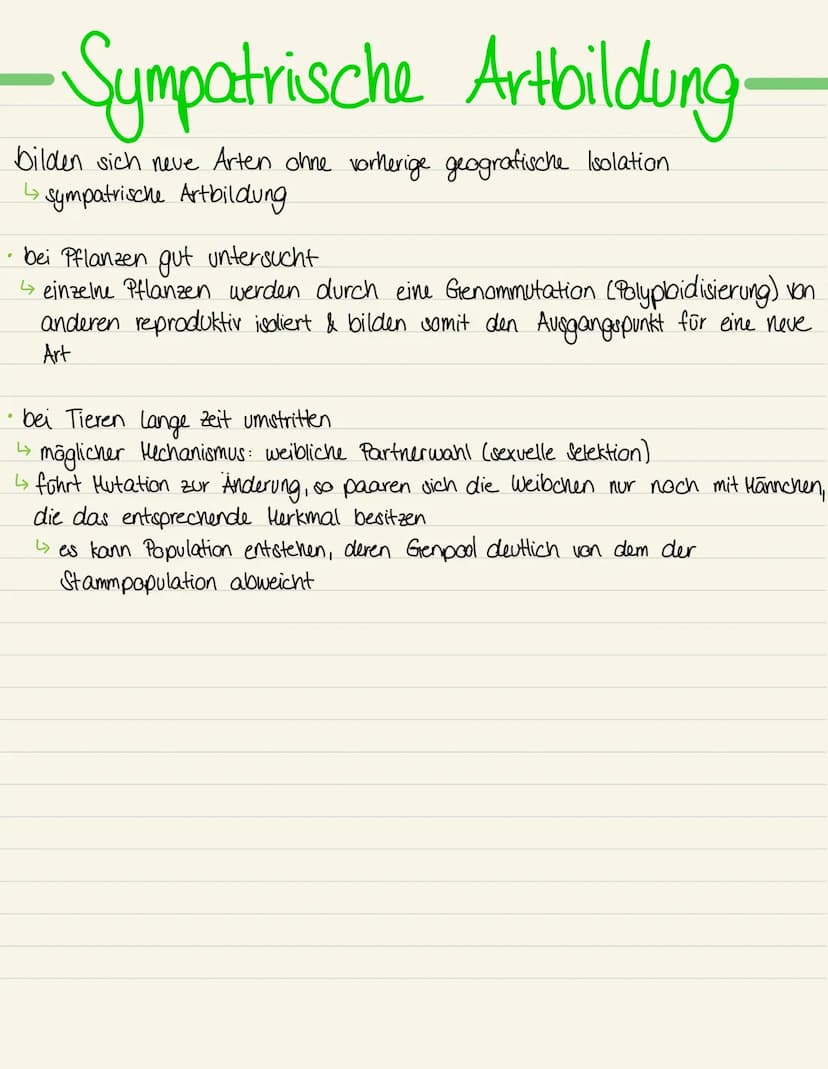 Sympatrische Artbildung
bilden sich neue Arten ohne vorherige geografische Isolation
↳ sympatrische Artbildung
· bei Pflanzen gut untersucht
↳ einzelne Pflanzen werden durch eine Genommutation (Polyploidisierung) von
anderen reproduktiv isoliert & bilden somit den Ausgangspunkt für eine neue
Art
· bei Tieren lange Zeit umstritten
↳ möglicher Mechanismus: weibliche Partnerwahl (sexuelle Selektion)
↳ führt Mutation zur Änderung, so paaren sich die Weibchen nur noch mit Männchen,
die das entsprechende Merkmal besitzen
↳ es kann Population entstehen, deren Genpool deutlich von dem der
Stammpopulation abweicht